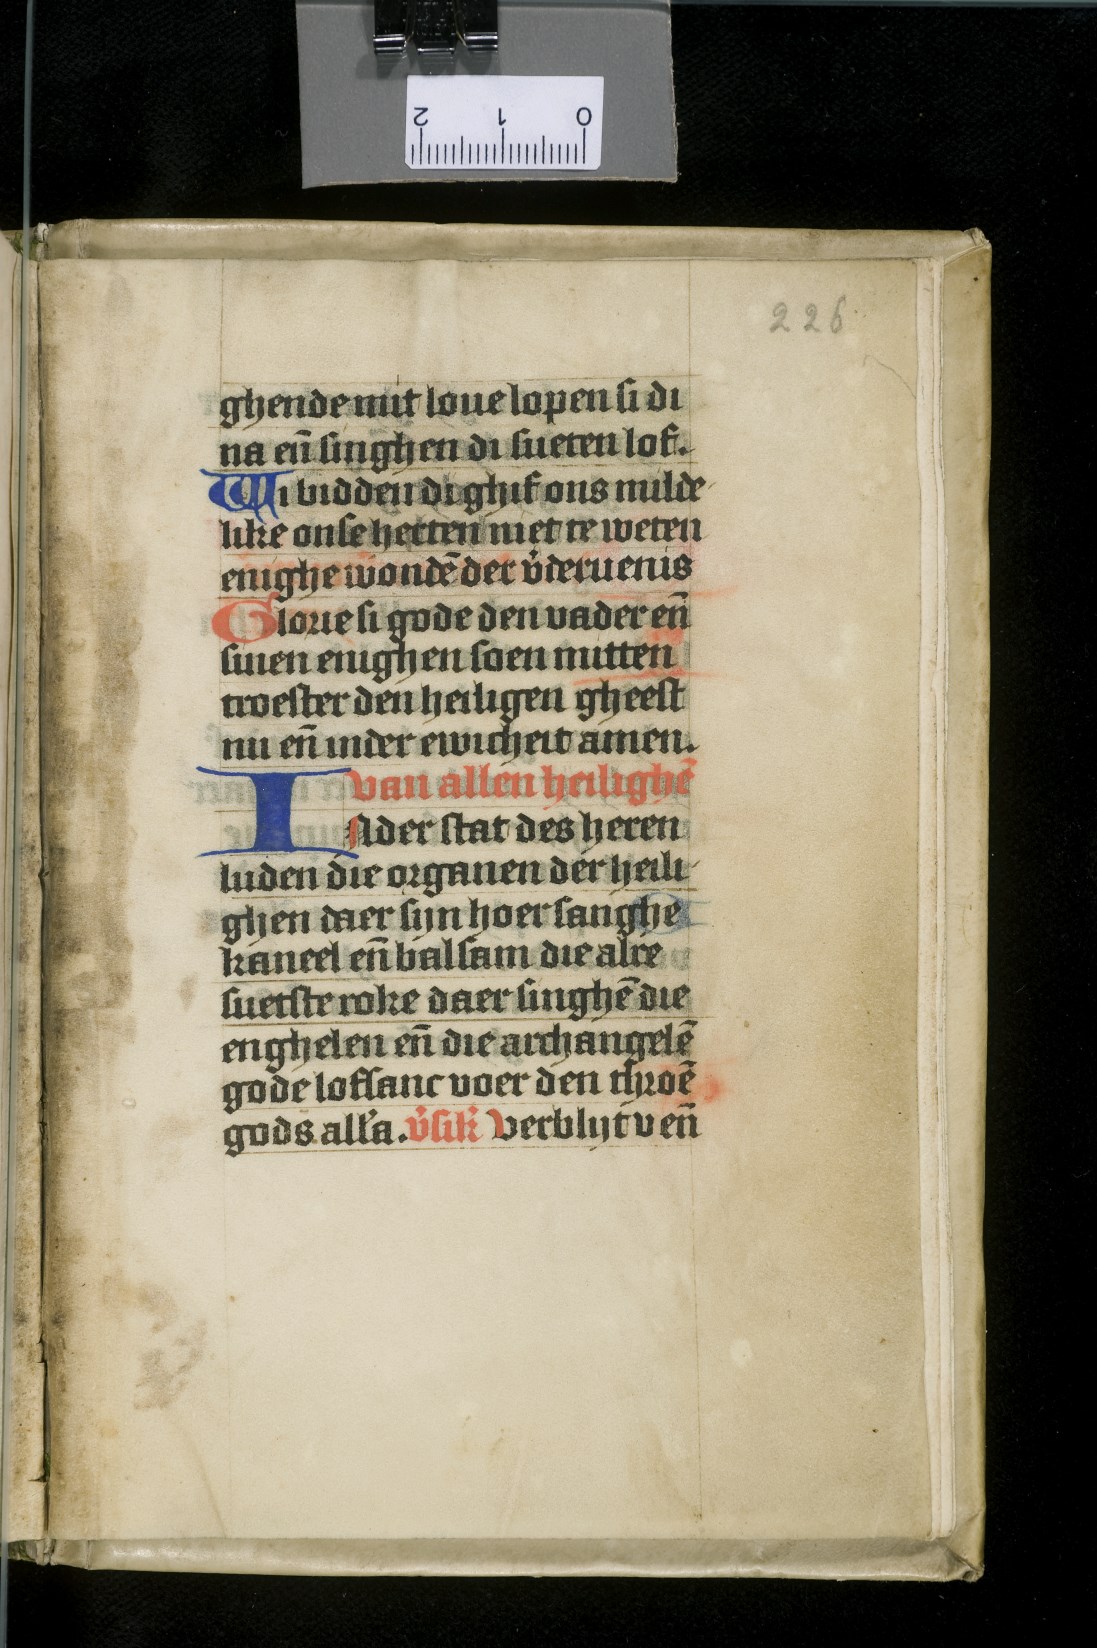 2 1 0
226
ghende mit loue lopen si di
na en̄ singhen di sueten lof.
Wi bidden di ghif ons milde
like onse herten niet te weten
enighe wondē der v̓deruenis
Glorie si gode den vader en̄
sinen enighen soen mitten
troester den heiligen gheest
nu en̄ inder ewicheit amen.
van allen heilighē
INder stat des heren
luden die organen der heili
ghen daer sijn hoer sanghe
kaneel en̄ balsam die alre
suetste roke daer singhē die
enghelen en̄ die archangelē
gode lofsanc voer den throē
gods all'a. v̓sik̓ Verblijt v en̄